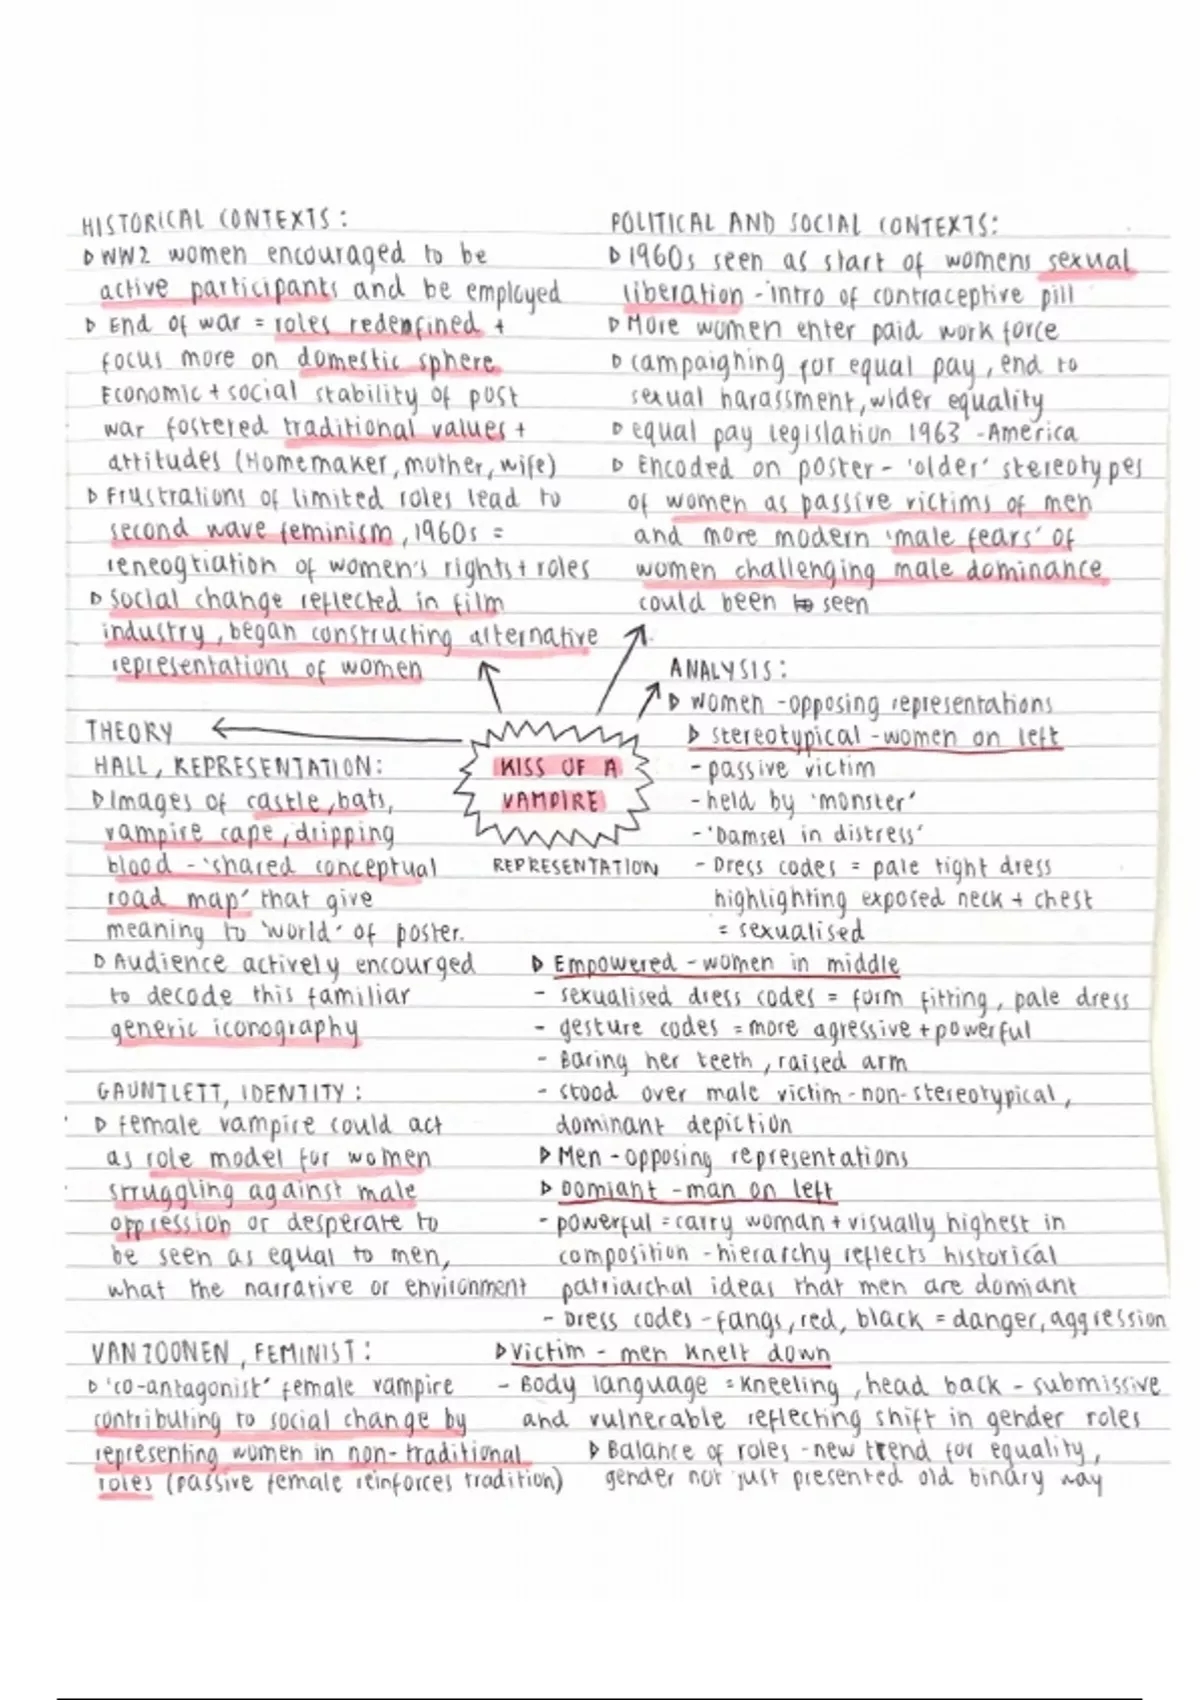 HISTORICAL CONTEXTS:
▷ WW2 women encouraged to be
active participants and be employed
▷ End of war = roles redenfined +
focus more on domestic sphere
Economic + social stability of post
war fostered traditional values +
attitudes (Homemaker, mother, wife)
▷ Frustrations of limited roles lead to
second wave feminism, 1960s =
reneogtiation of women's rights + roles
▷ Social change reflected in film
industry, began constructing alternative
representations of women
POLITICAL AND SOCIAL CONTEXTS:
▷ 1960s seen as start of womens sexual
liberation - intro of contraceptive pill
▷ More women enter paid work force
▷ campaighing for equal pay, end to
sexual harassment, wider equality
▷ equal pay legislation 1963 - America
▷ Encoded on poster - 'older' stereotypes
of women as passive victims of men
and more modern 'male fears' of
women challenging male dominance
could been seen
KISS OF A
VAMPIRE
REPRESENTATION
THEORY
HALL, REPRESENTATION:
▷ Images of castle, bats,
vampire cape, dripping
blood - 'shared conceptual
road map' that give
meaning to 'world' of poster.
▷ Audience actively encourged
to decode this familiar
generic iconography
GAUNTLETT, IDENTITY:
▷ female vampire could act
as role model for women
struggling against male
oppression or desperate to
be seen as equal to men,
what the narrative or environment
VAN ZOONEN, FEMINIST:
▷ 'co-antagonist' female vampire
contributing to social change by
representing women in non-traditional
roles (passive female reinforces tradition)
ANALYSIS:
▷ women - opposing representations
▷ stereotypical - women on left
- passive victim
- held by 'monster'
- 'Damsel in distress'
- Dress codes = pale tight dress
highlighting exposed neck + chest
= sexualised
▷ Empowered - women in middle
- sexualised dress codes = form fitting, pale dress
- gesture codes = more agressive + powerful
- Baring her teeth, raised arm
- stood over male victim - non-stereotypical,
dominant depiction
▷ Men - opposing representations
▷ Domiant - man on left
- powerful = carry woman + visually highest in
composition - hierarchy reflects historical
patriarchal ideas that men are domiant
- Dress codes - fangs, red, black = danger, aggression
▷ Victim - men knelt down
- Body language = kneeling, head back - submissive
and vulnerable reflecting shift in gender roles
▷ Balance of roles - new trend for equality,
gender not just presented old binary way